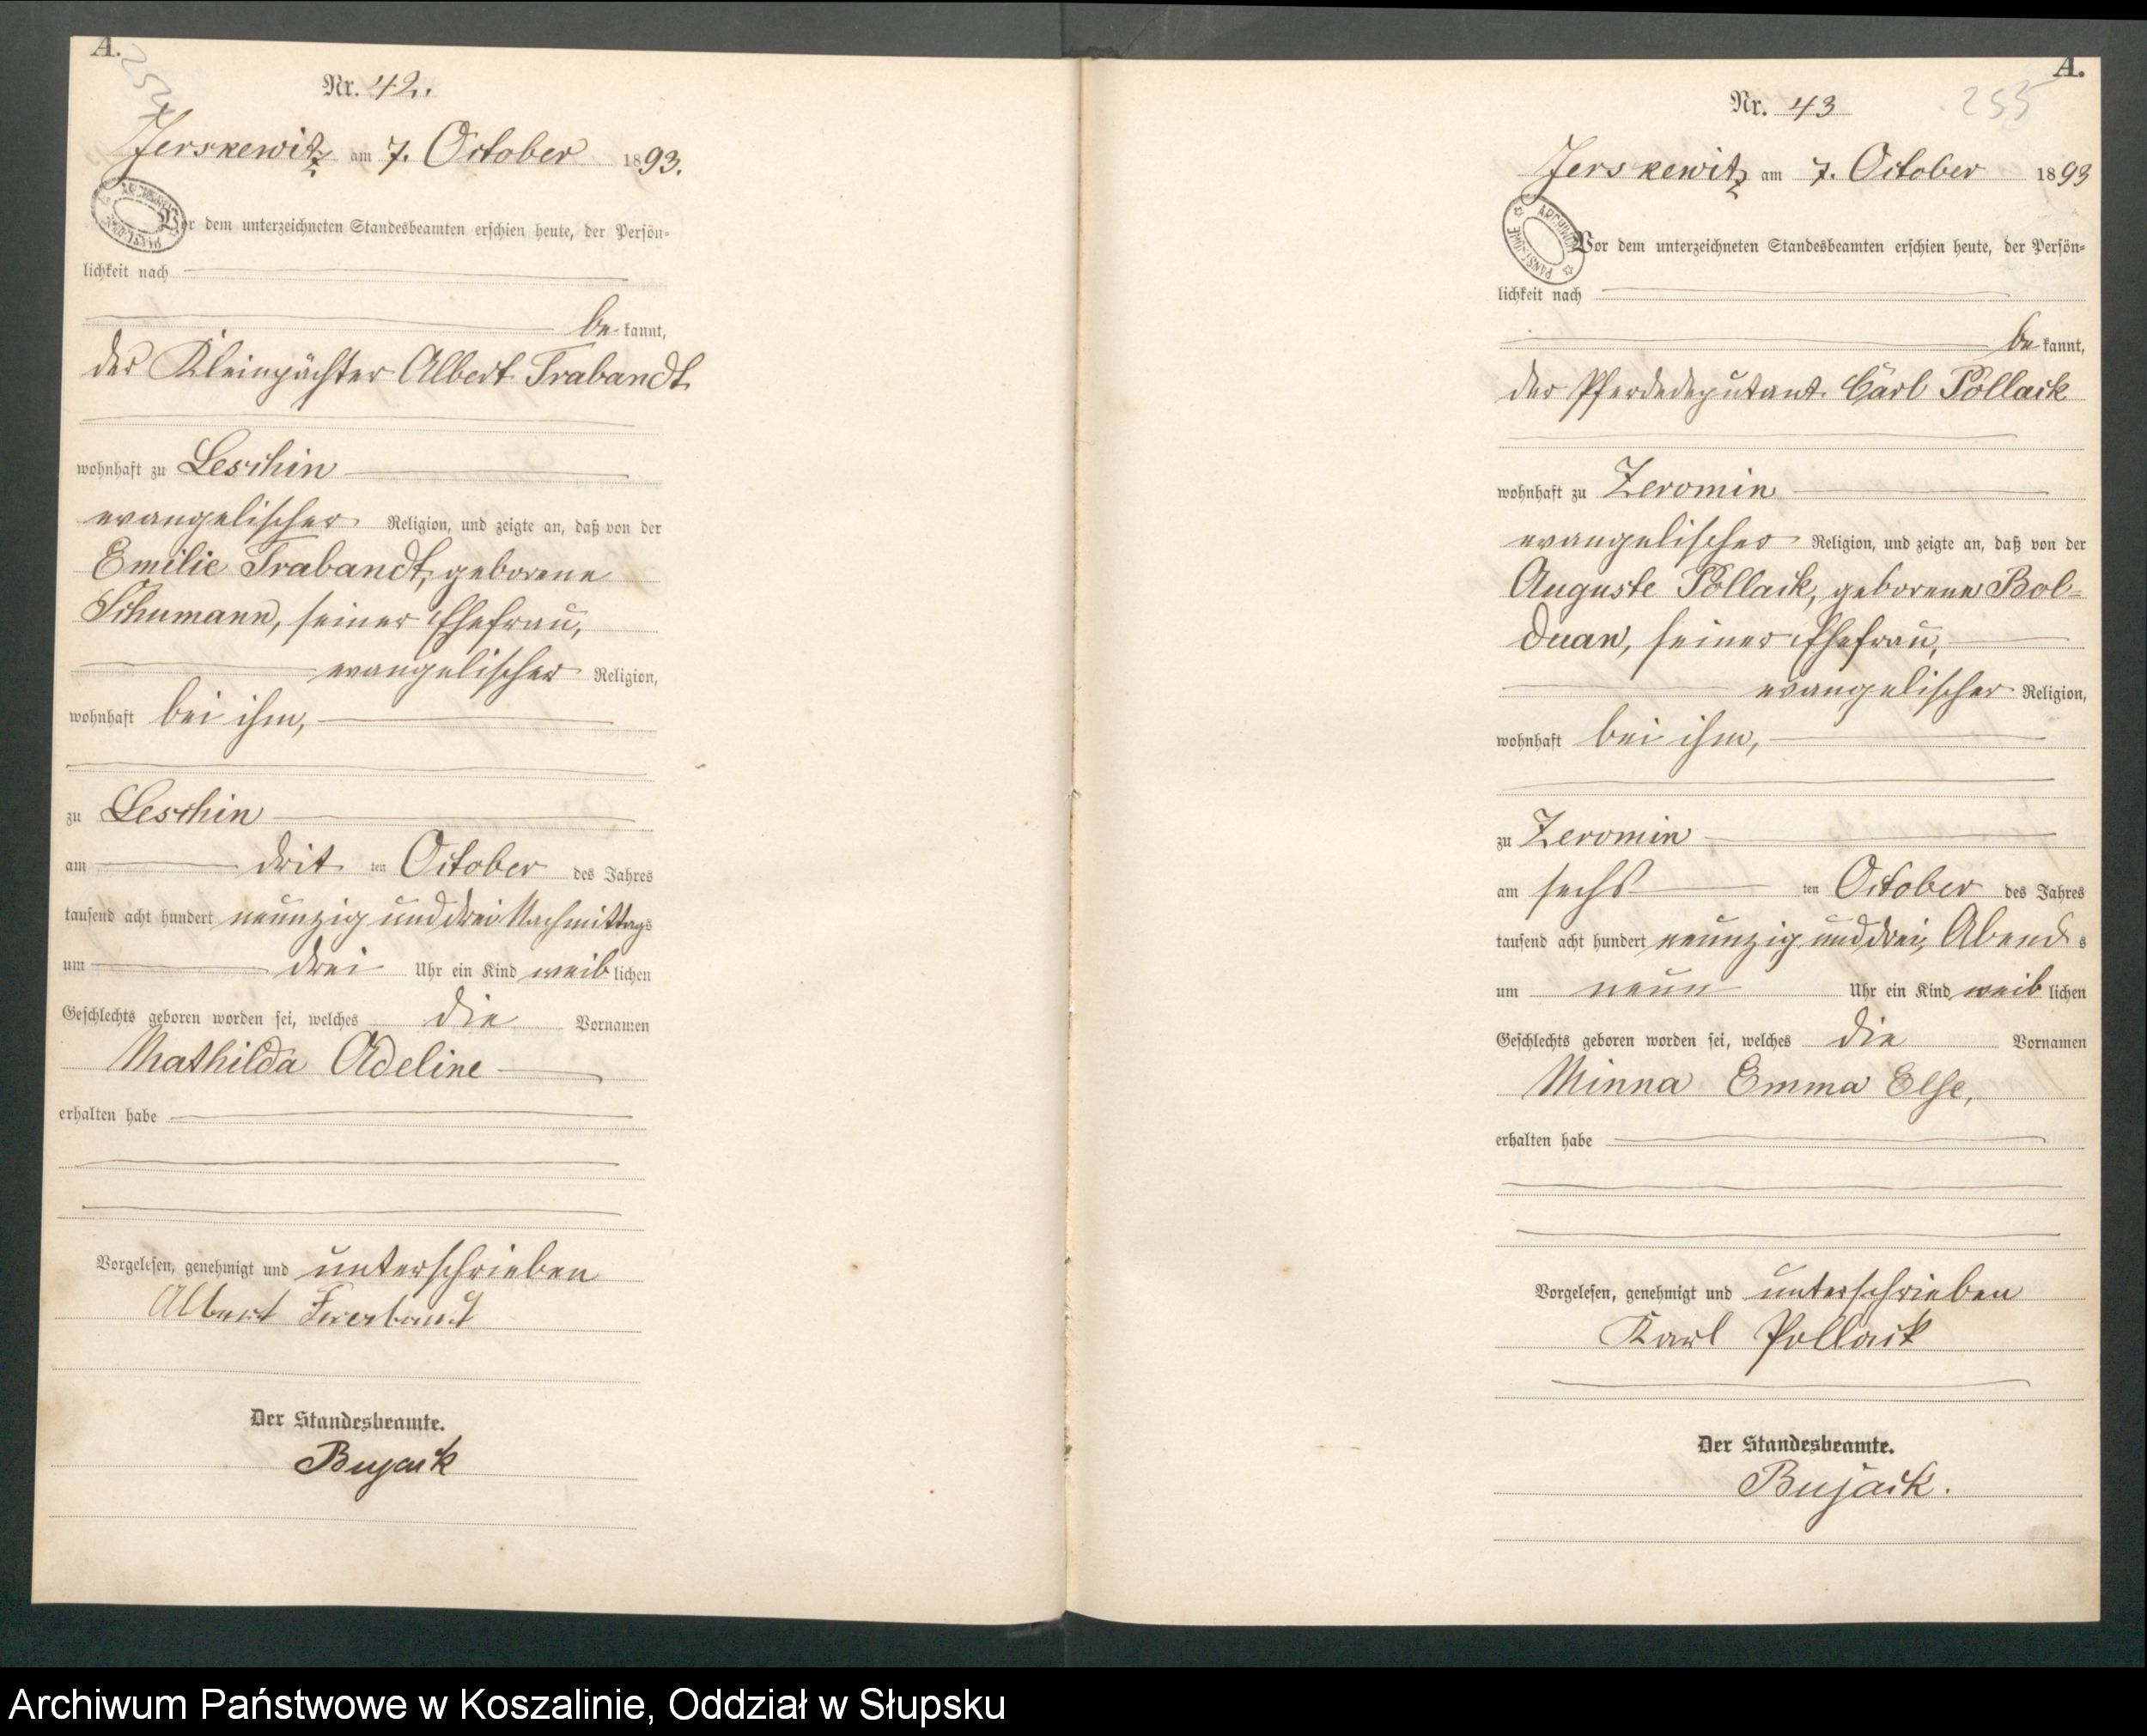 A.
254
Nr. 42.
Jerskewitz am 7. October 1893.
Vor dem unterzeichneten Standesbeamten erschien heute, der Persön-
lichkeit nach
be kannt,
der Kleinpächter Albert Trabandt
wohnhaft zu Leschin
evangelischer Religion, und zeigte an, daß von der
Emilie Trabandt, geborene
Schumann, seiner Ehefrau,
evangelischer Religion,
wohnhaft bei ihm,
zu Leschin
am drit ten October des Jahres
tausend acht hundert neunzig und drei Nachmittags
um drei Uhr ein Kind weib lichen
Geschlechts geboren worden sei, welches die Vornamen
Mathilda Adeline
erhalten habe
Vorgelesen, genehmigt und unterschrieben
Albert Trabandt
Der Standesbeamte.
Bujack
A.
255
Nr. 43
Jerskewitz am 7. October 1893
ARCHIWUM PAŃSTWOWE
Vor dem unterzeichneten Standesbeamten erschien heute, der Persön-
lichkeit nach
be kannt,
der Pferdedeputant Carl Pollack
wohnhaft zu Zeromin
evangelischer Religion, und zeigte an, daß von der
Auguste Pollack, geborene Bol-
duan, seiner Ehefrau,
evangelischer Religion,
wohnhaft bei ihm,
zu Zeromin
am sechs ten October des Jahres
tausend acht hundert neunzig und drei, Abend s
um neun Uhr ein Kind weib lichen
Geschlechts geboren worden sei, welches die Vornamen
Minna Emma Else,
erhalten habe
Vorgelesen, genehmigt und unterschrieben
Karl Pollack
Der Standesbeamte.
Bujack.
Archiwum Państwowe w Koszalinie, Oddział w Słupsku